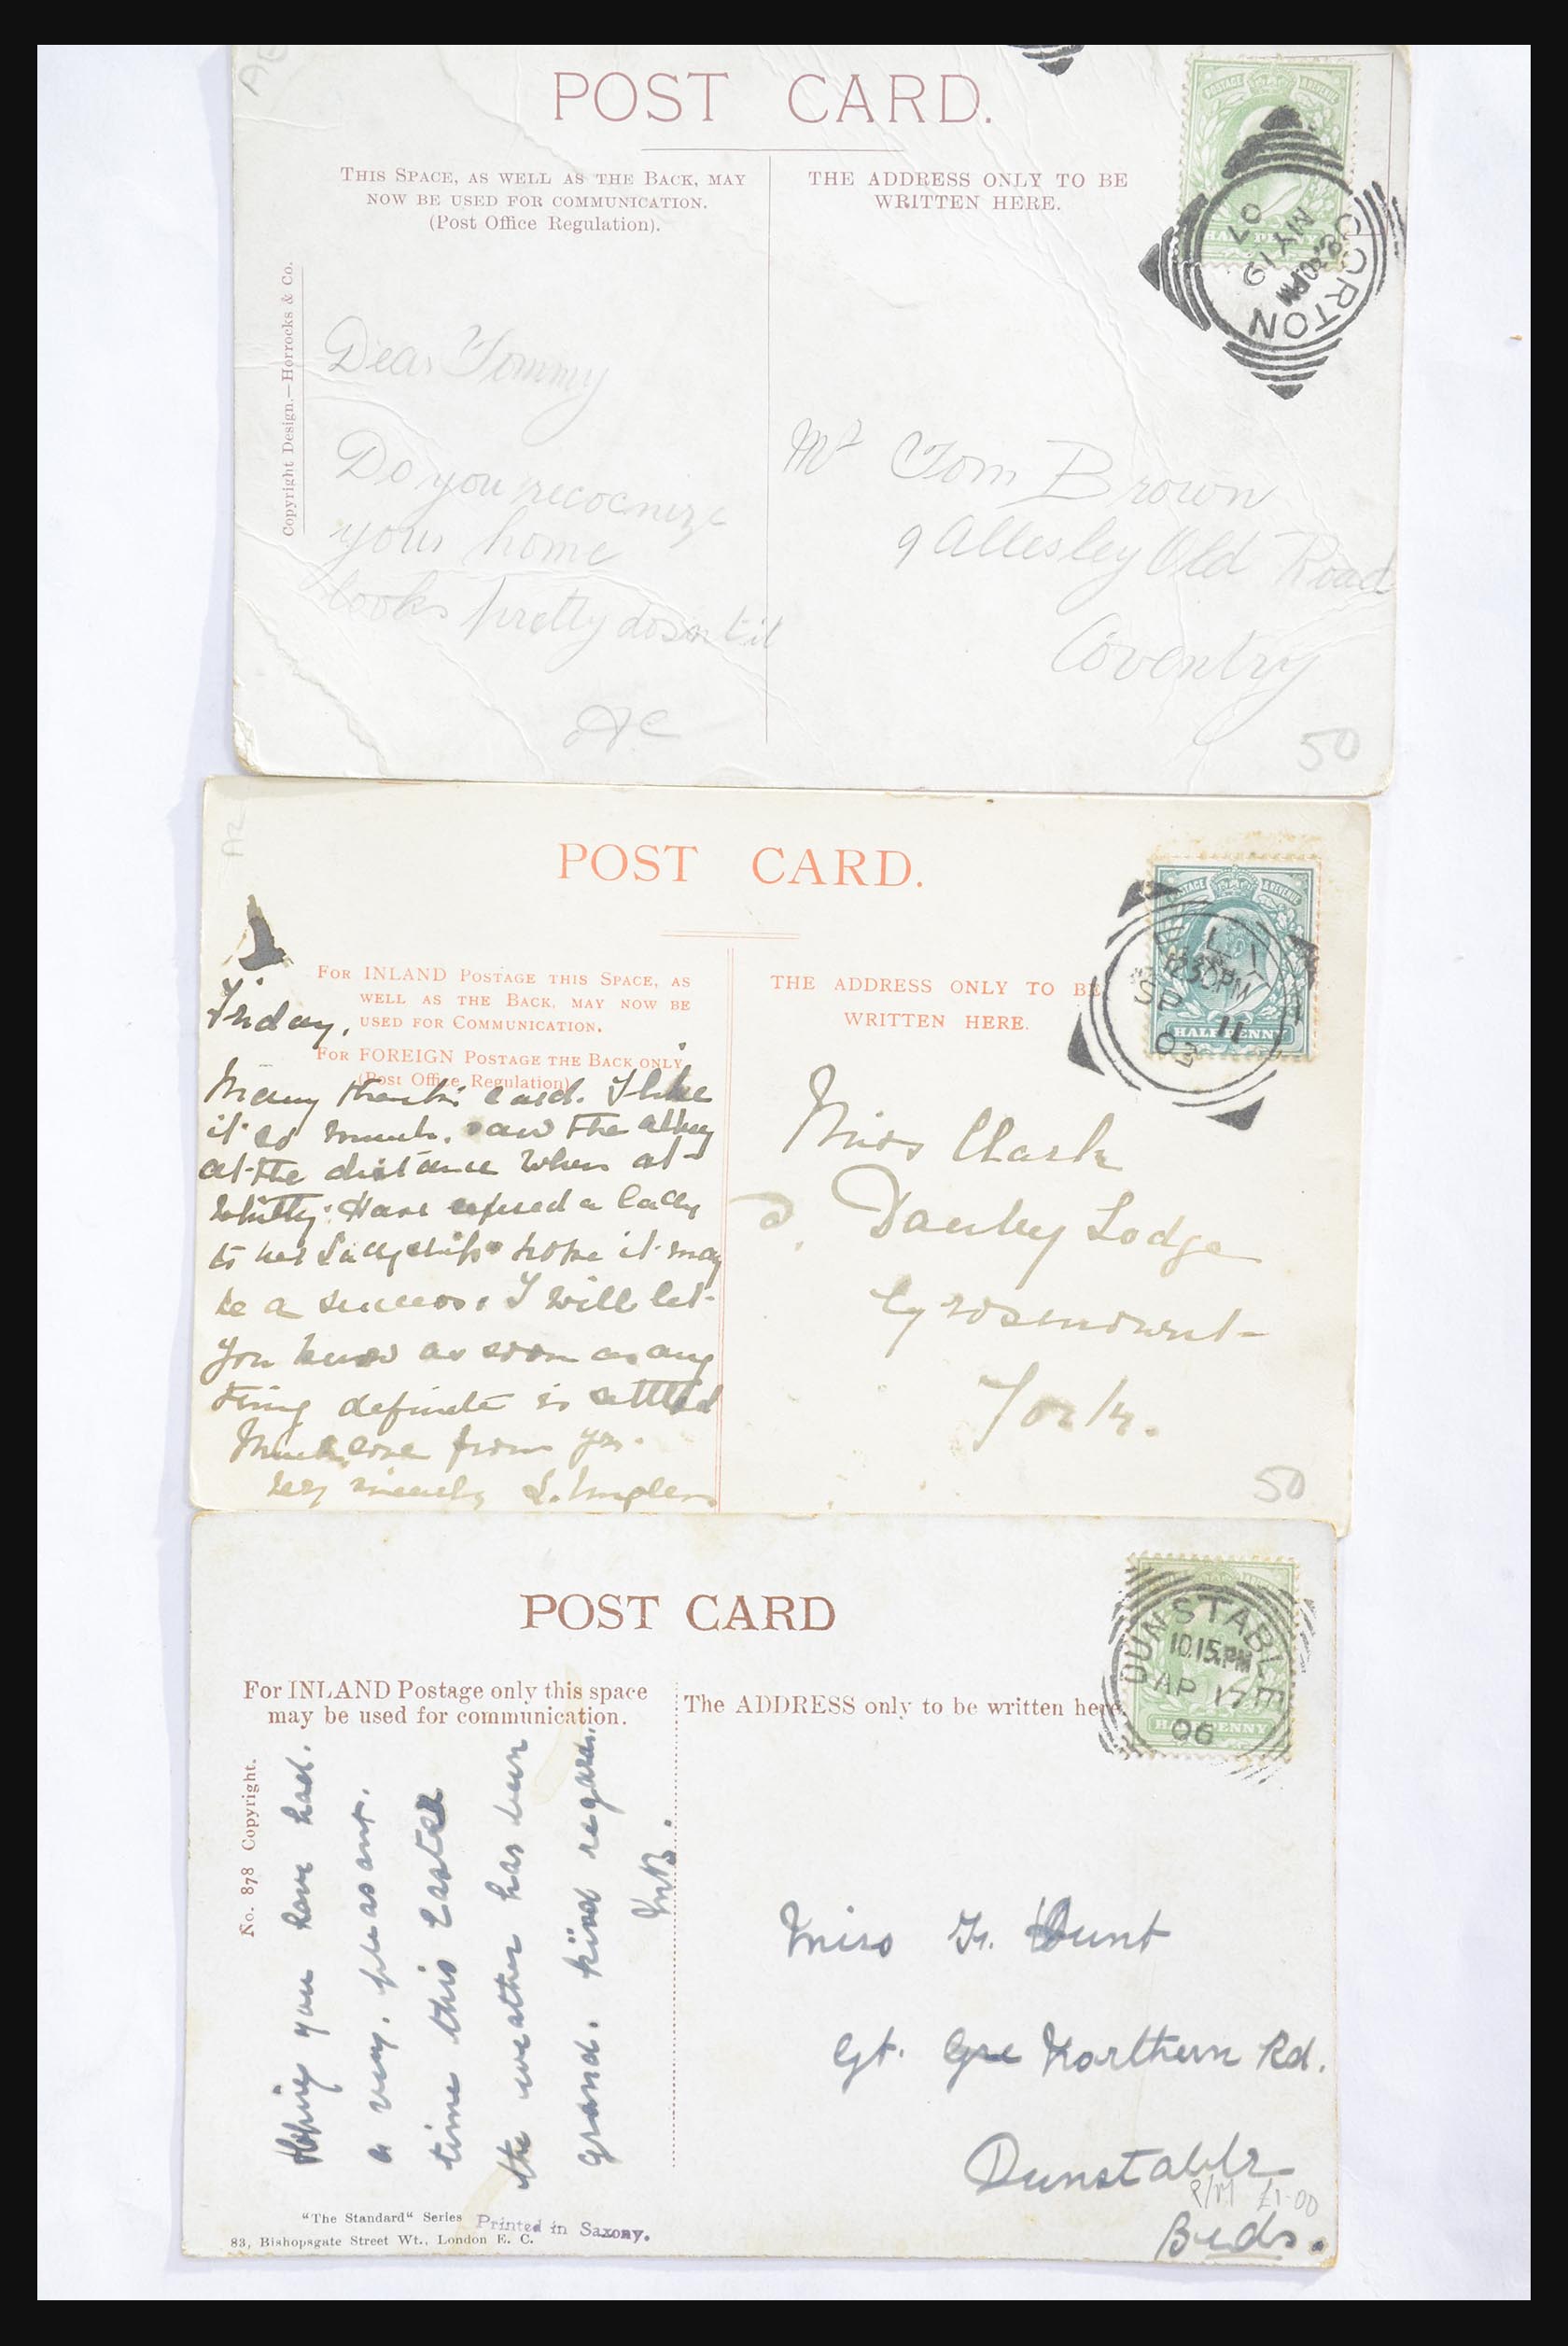 AE
POST CARD.
THIS SPACE, AS WELL AS THE BACK, MAY
NOW BE USED FOR COMMUNICATION.
(Post Office Regulation).
THE ADDRESS ONLY TO BE
WRITTEN HERE.
POSTAGE & REVENUE
HALFPENNY
CORTON
8.30PM
MY 19
07
Copyright Design.—Horrocks & Co.
Dear Tommy
Do you recocnize
your home
looks pretty dosn't it
AC
Mr Tom Brown
9 Allesley Old Road
Coventry
50
POST CARD.
FOR INLAND POSTAGE THIS SPACE, AS
WELL AS THE BACK, MAY NOW BE
USED FOR COMMUNICATION.
FOR FOREIGN POSTAGE THE BACK ONLY
(Post Office Regulation)
THE ADDRESS ONLY TO BE
WRITTEN HERE.
POSTAGE & REVENUE
HALFPENNY
1230PM
SP 11
Friday,
Many thanks card. I like
it so much. saw the abbey
at the distance when at
Whitby. Have a lady
to her Ladyship hope it may
be a success. I will let
you know as soon as any
thing definite is settled
Much love from yrs.
very sincerely
Miss Clark
Danby Lodge
Grosmount
York.
50
POST CARD
For INLAND Postage only this space
may be used for communication.
The ADDRESS only to be written here
DUNSTABLE
10.15.PM
AP 17
06
HALFPENNY
No. 878 Copyright.
Hoping you have had.
a very. pleasant.
time this Easter
the weather has been
grand. kind regards.
Miss F. Hunt
Gt. Gre Northern Rd.
Dunstable
P/M £1-00
Beds.
“The Standard“ Series
83, Bishopsgate Street Wt., London E. C.
Printed in Saxony.